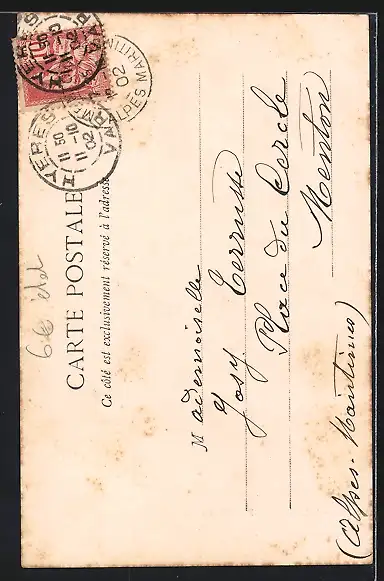 CARTE POSTALE
Ce côté est exclusivement réservé à l'adresse
Mademoiselle
Josy Cerrutti
Place du Cercle
Menton
(Alpes-Maritimes)
HYERES
11 50
11 -10
02
VAR
02
ALPES MARITIM
6€